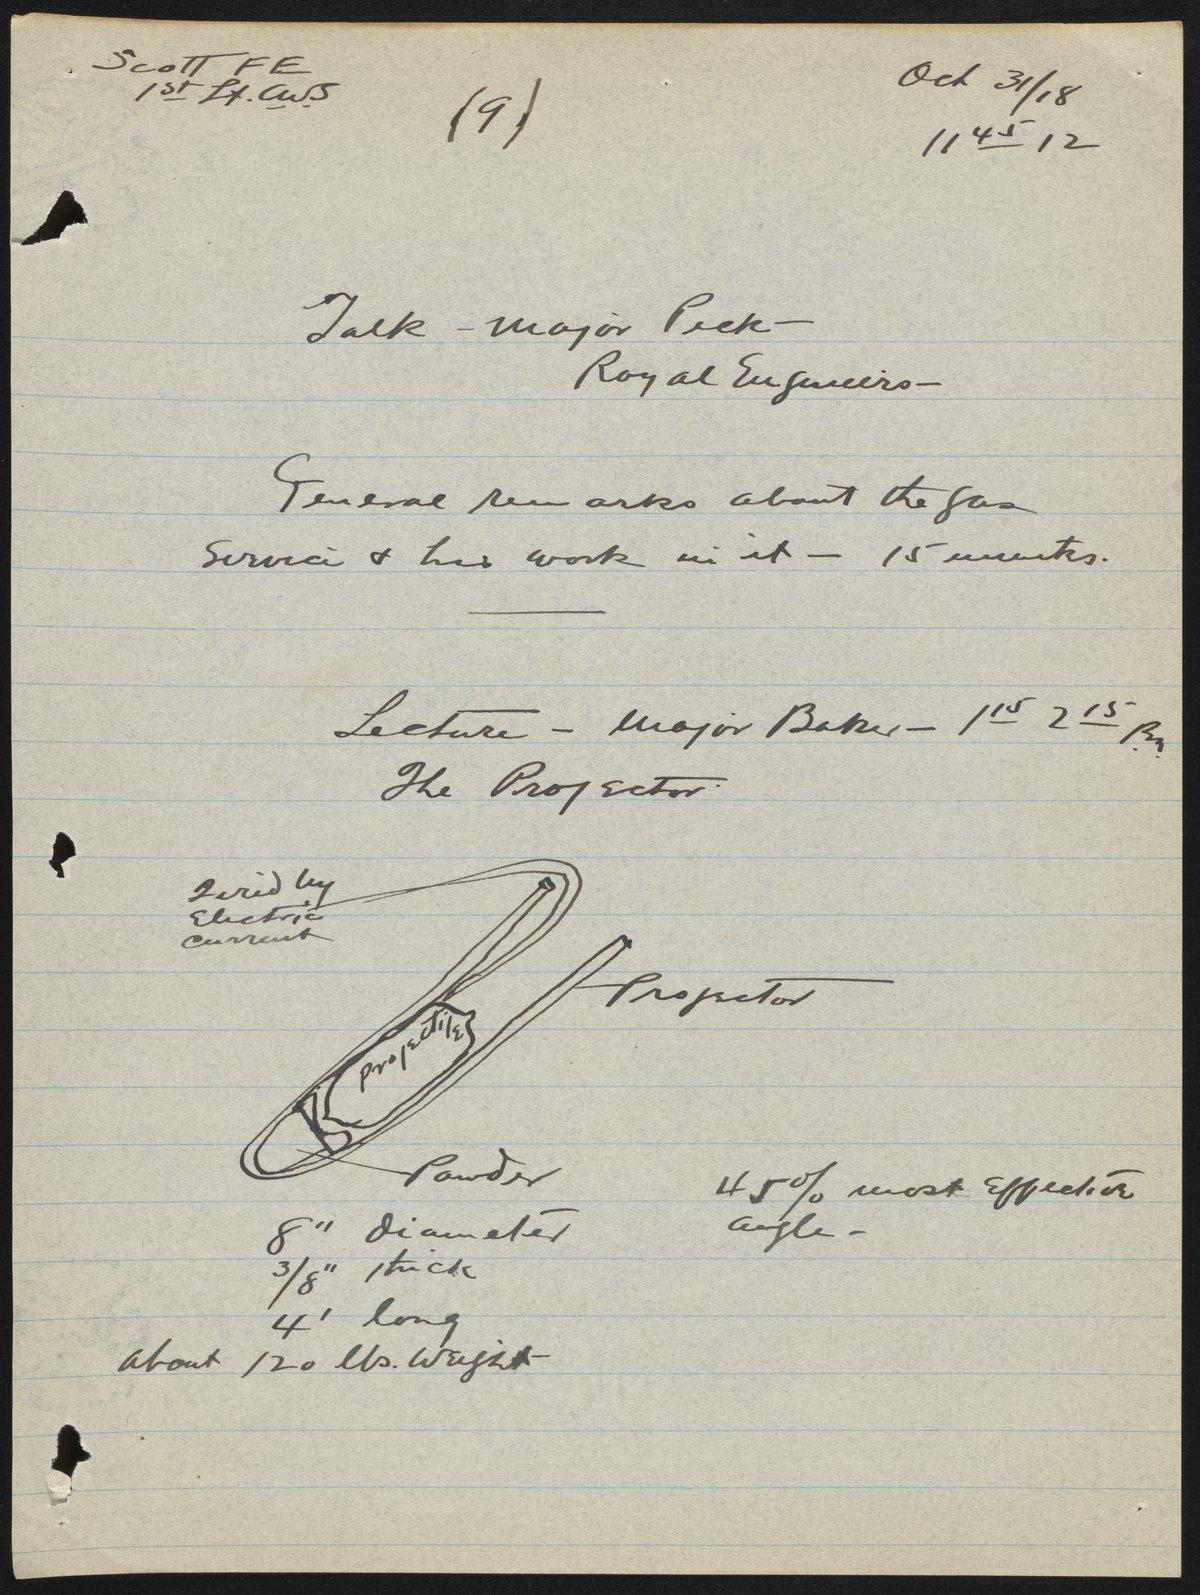 Scott FE
1st Lt. CWS
(9)
Oct 31/18
11 45 12
Talk - Major Peck -
Royal Engineers -
General remarks about the gas
Service & his work in it - 15 minutes.
Lecture - Major Baker - 1 15 2 15 P.M.
The Projector.
Fired by
Electric
Current
Projector
projectile
Powder
45% most effective
angle -
8" diameter
3/8" thick
4' long
About 120 lbs. Weight